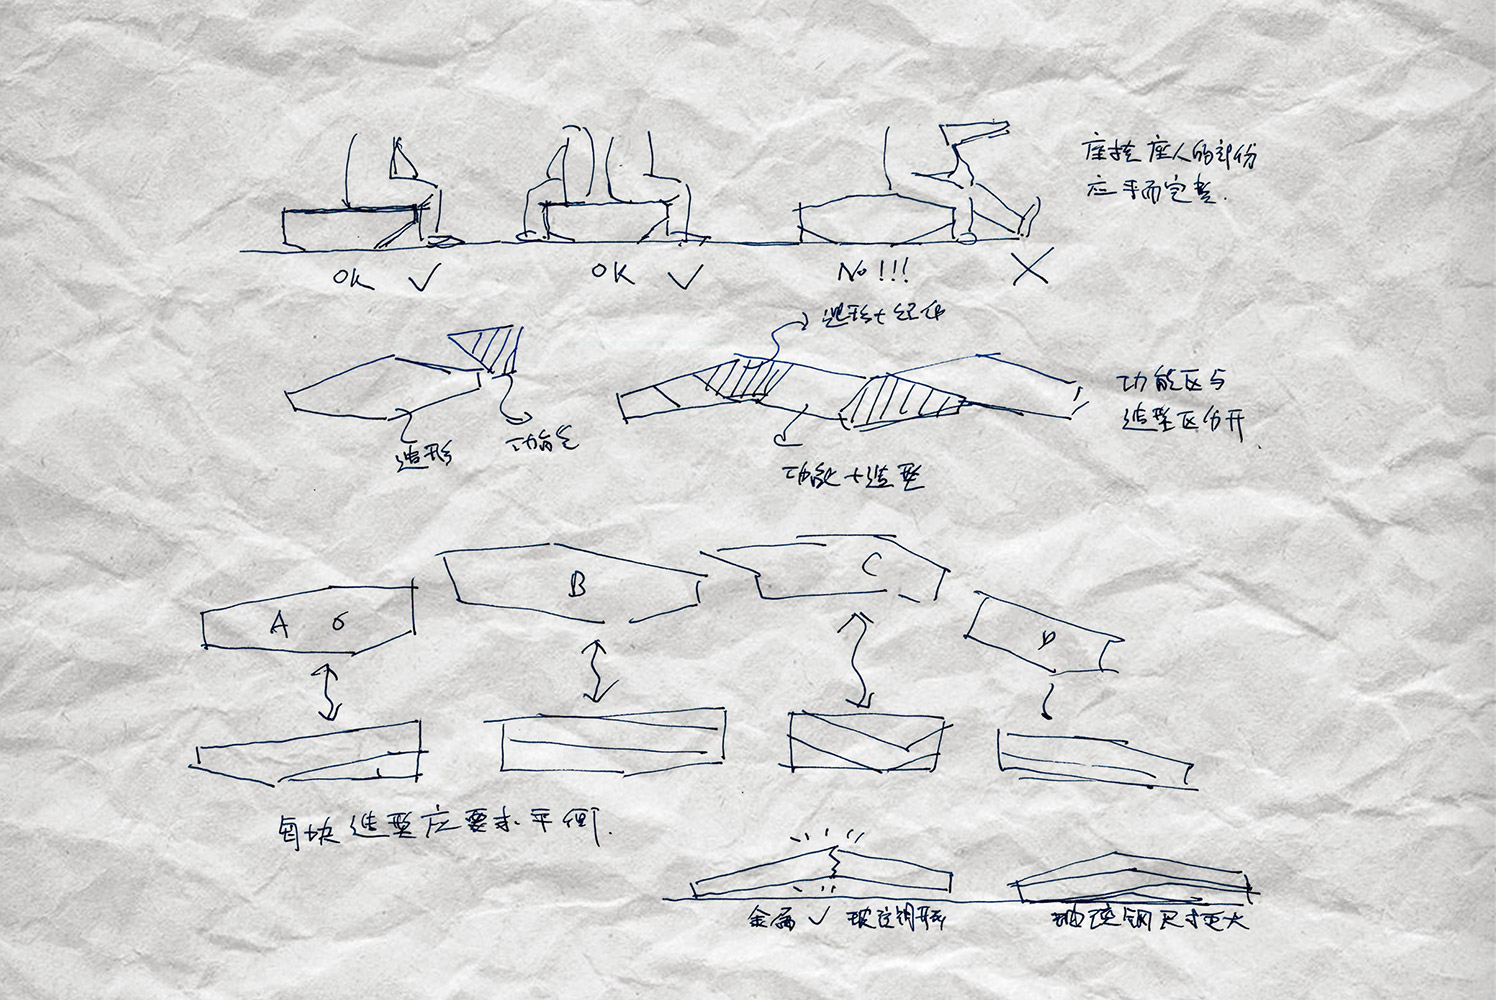 座椅座人的部份
应平而完整.
OK ✓
OK ✓
No!!!
造形+
造形
功能
功能+造型
功能区与
造型区分开.
A
B
C
D
每块造型应要求平衡.
金属 ✓ 玻璃钢
玻璃钢尺寸更大